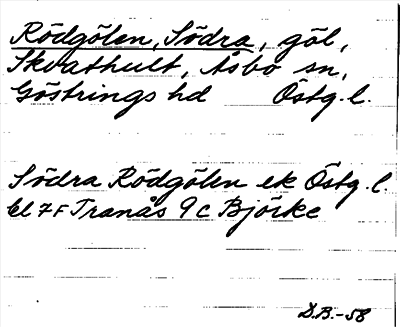 Rödgölen, Södra, göl,
Skvathult, Åsbo sn,
Göstrings hd Östg. l.
Södra Rödgölen ek Östg. l.
bl 7F Tranås 9c Björke
D.B.-58